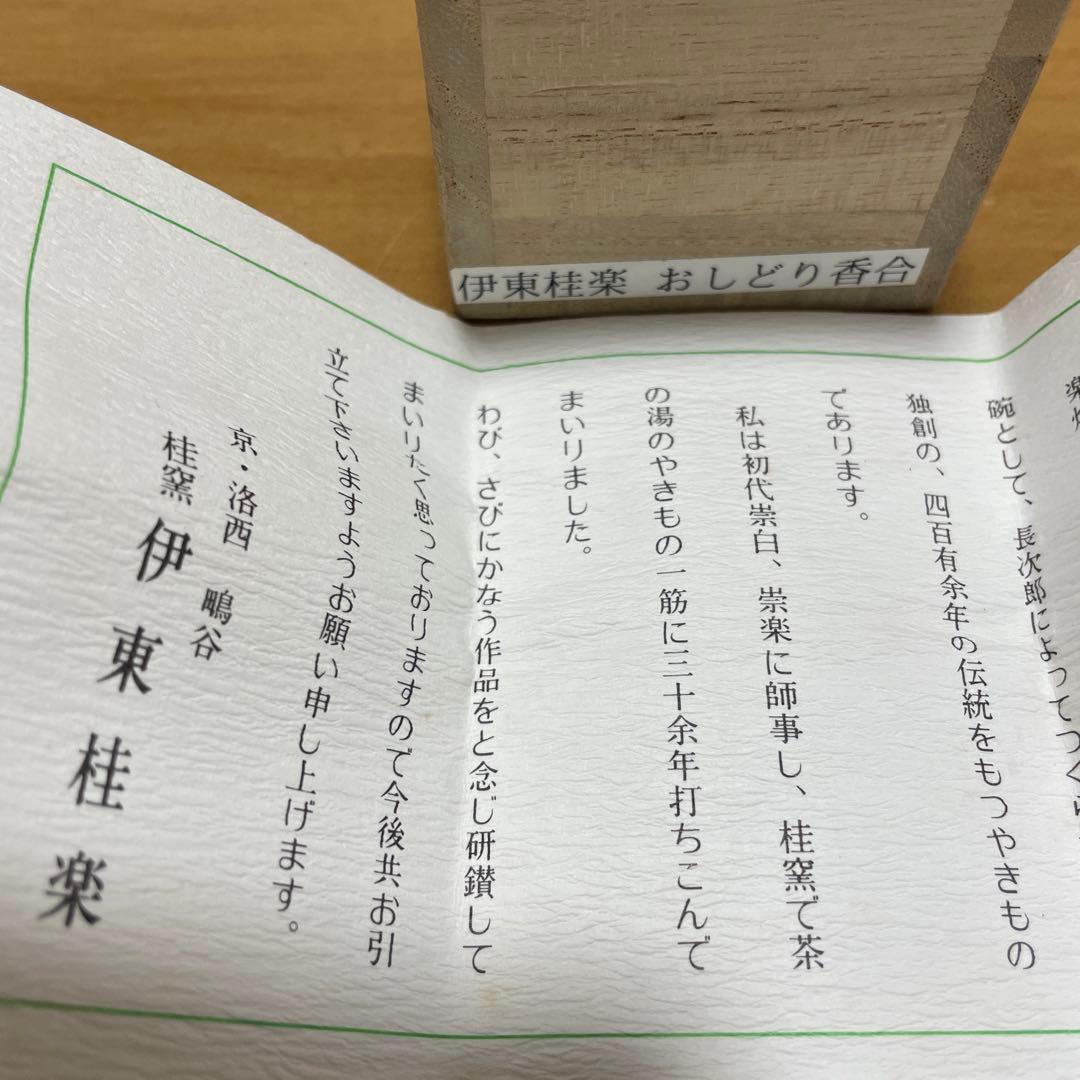 伊東桂楽 おしどり香合
楽焼
碗として、長次郎によってつくら
独創の、四百有余年の伝統をもつやきもの
であります。
私は初代崇白、崇楽に師事し、桂窯で茶
の湯のやきもの一筋に三十余年打ちこんで
まいりました。
わび、さびにかなう作品をと念じ研鑚して
まいりたく思っておりますので今後共お引
立て下さいますようお願い申し上げます。
京・洛西 鴫谷
桂窯 伊東桂楽